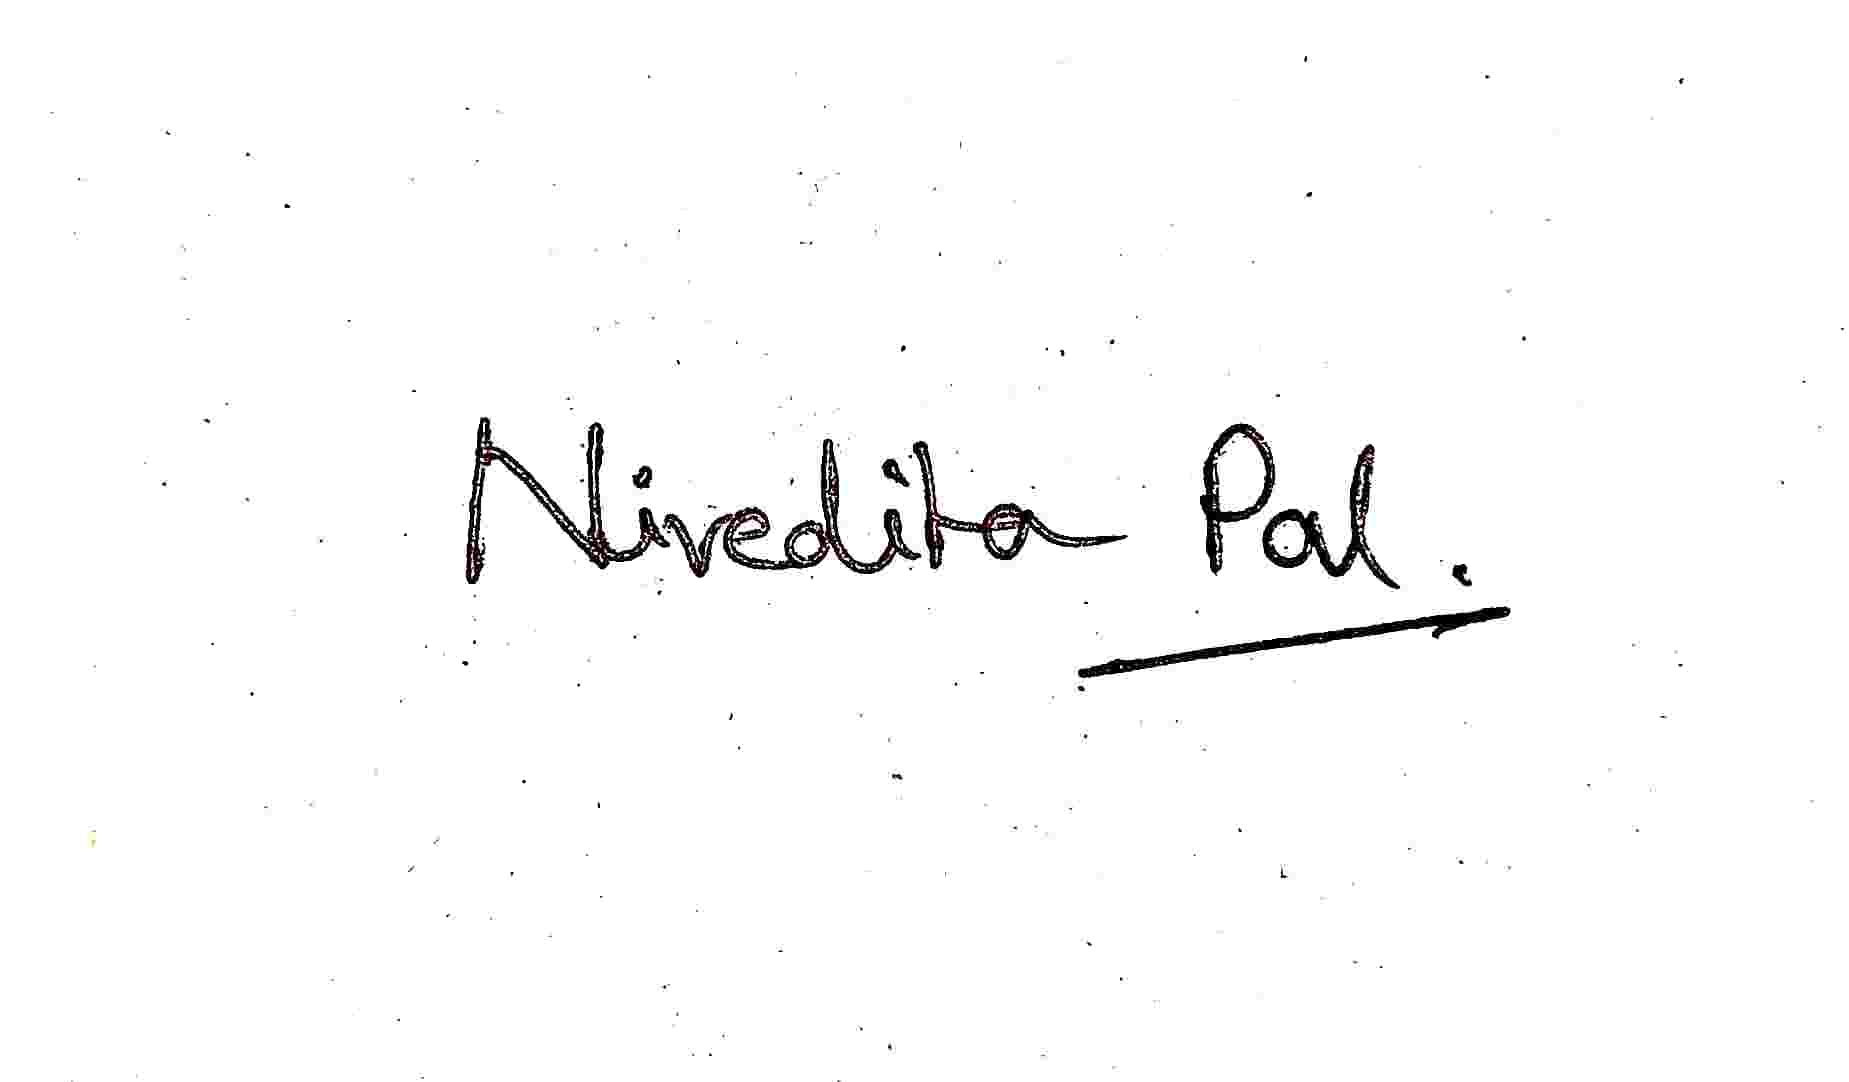 Nivedita Pal.